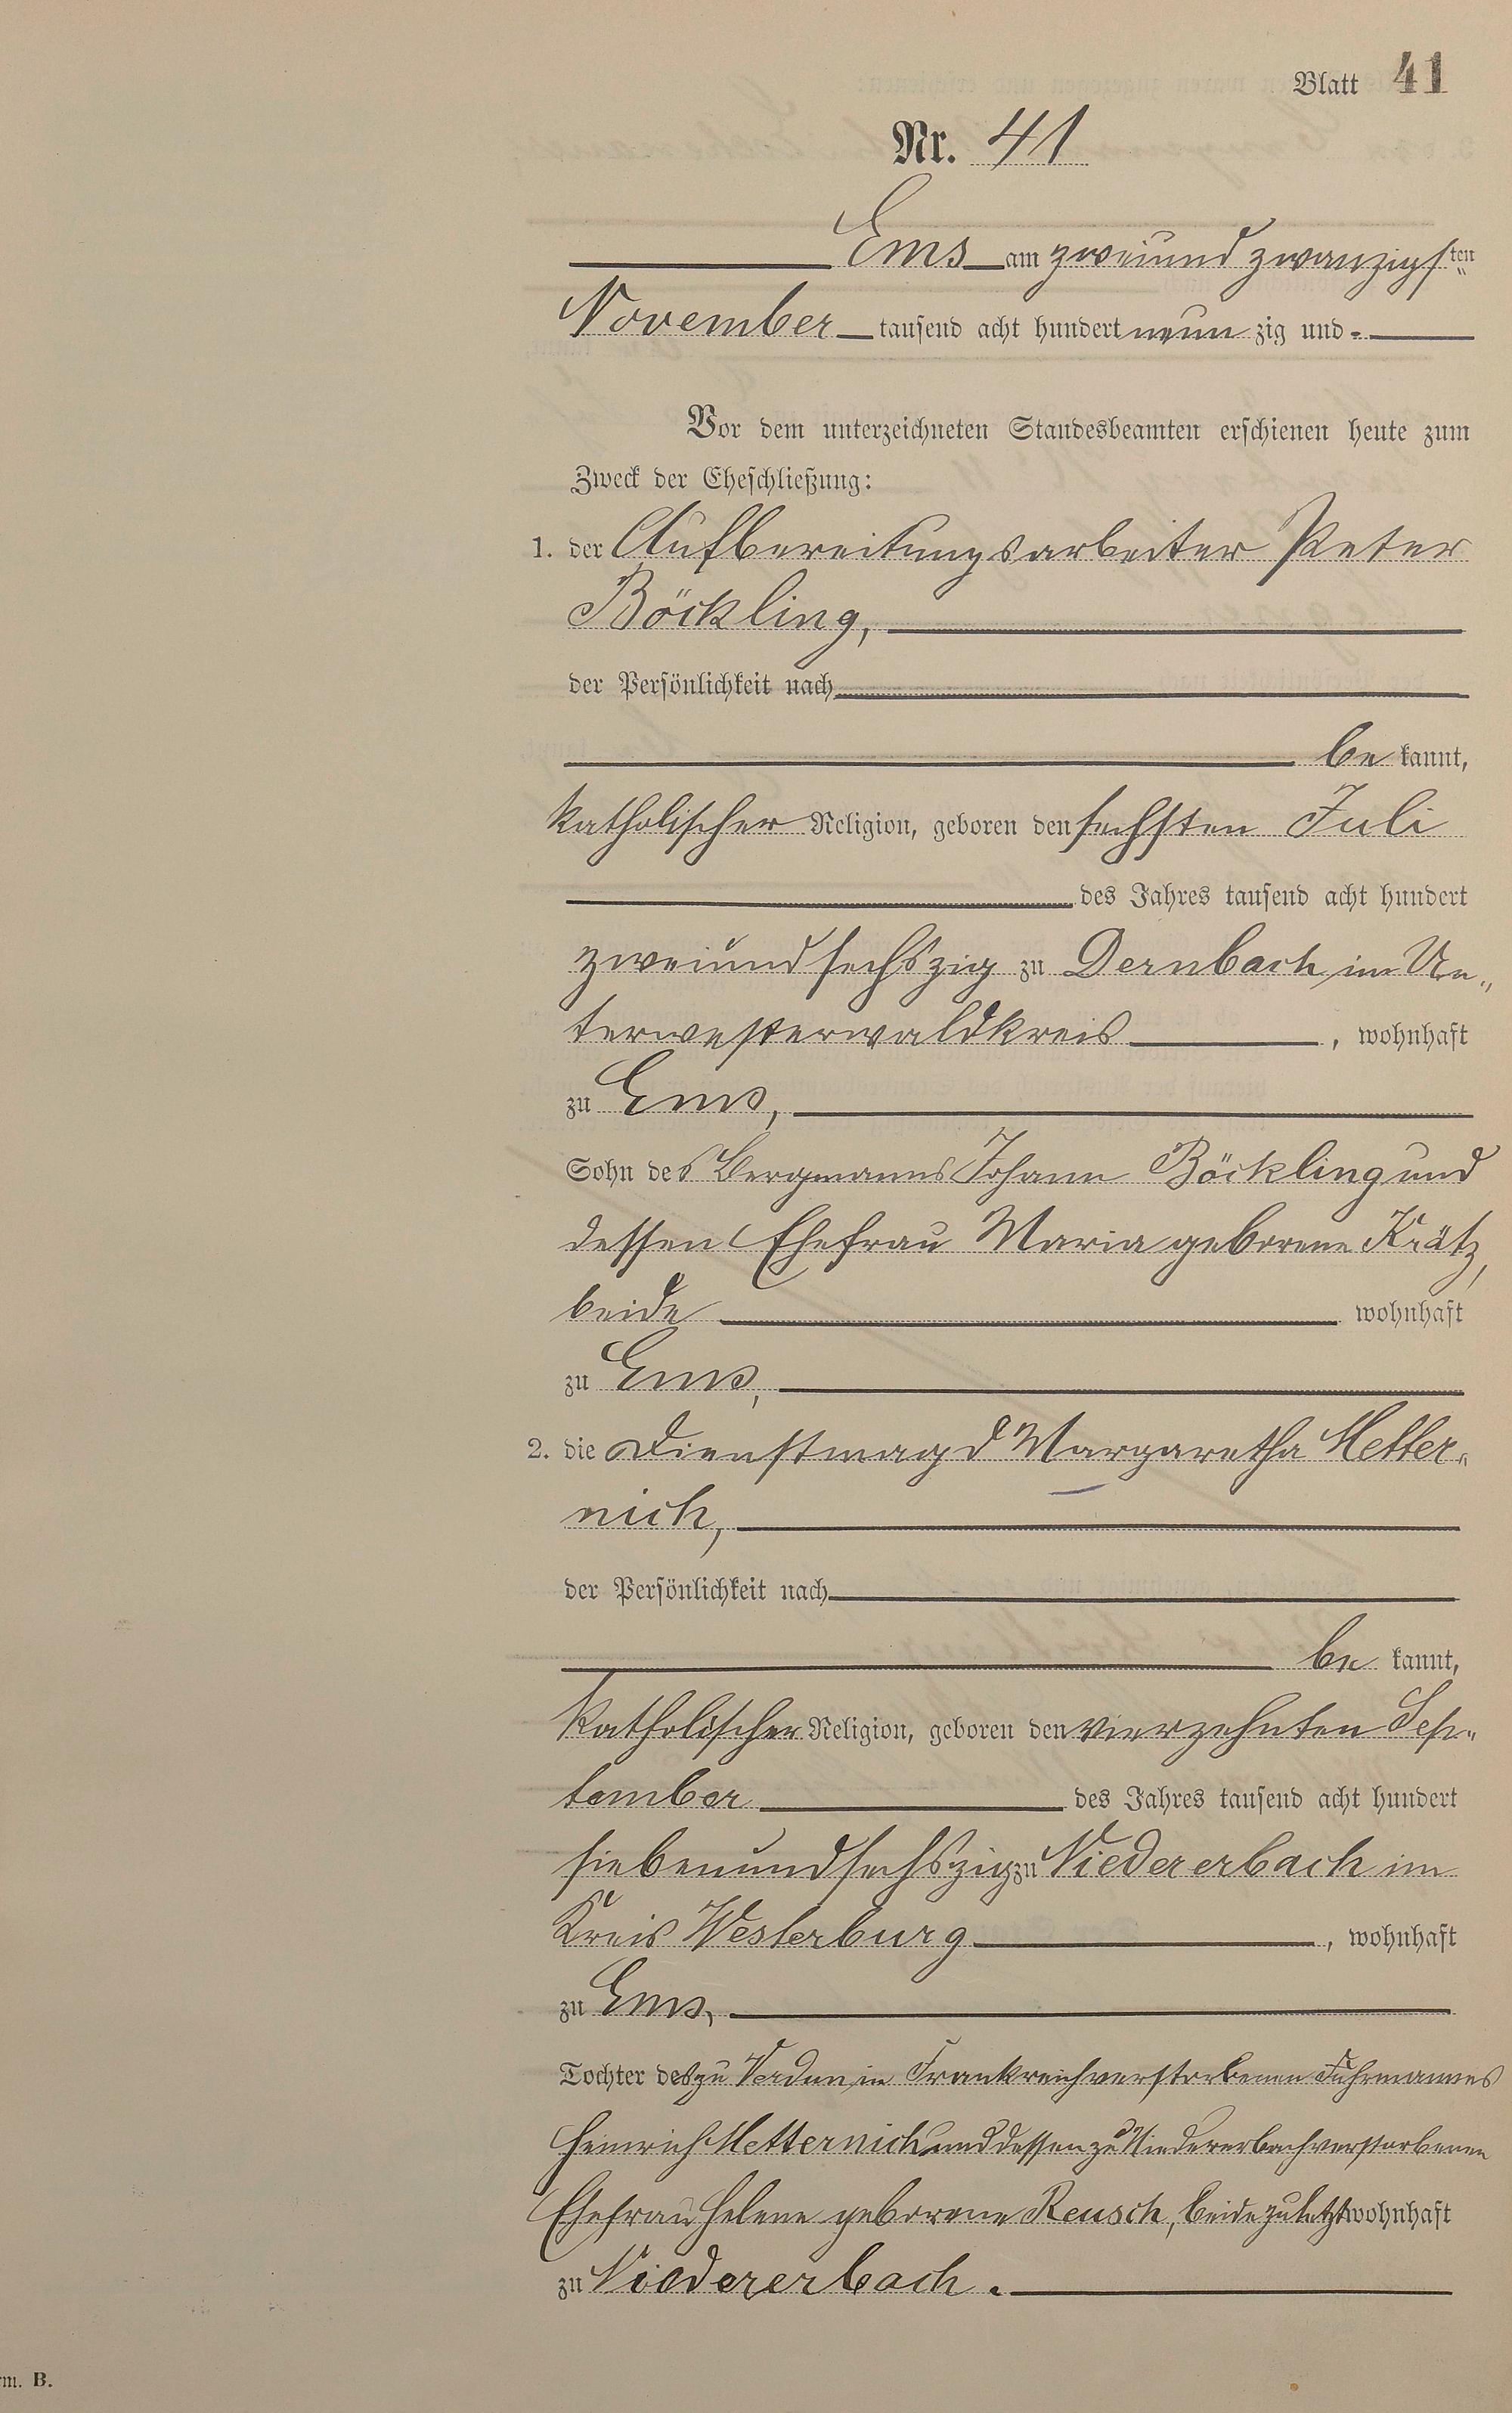 Blatt 41
Nr. 41
Ems am zweiund zwanzigsten
November tausend acht hundert neun zig und -
Vor dem unterzeichneten Standesbeamten erschienen heute zum
Zweck der Eheschließung:
1. der Aufbereitungsarbeiter Peter
Böckling,
der Persönlichkeit nach
be kannt,
katholischer Religion, geboren den sechsten Juli
des Jahres tausend acht hundert
zweiundsechszig zu Dernbach im Un„
terwesterwaldkreis, wohnhaft
zu Ems,
Sohn des Bergmanns Johann Böckling und
dessen Ehefrau Maria geborene Krätz,
beide wohnhaft
zu Ems,
2. die Dienstmagd Margaretha Metter„
nich,
der Persönlichkeit nach
be kannt,
katholischer Religion, geboren den vierzehnten Sep„
tember des Jahres tausend acht hundert
siebenundsechszig zu Niedererbach im
Kreis Westerburg, wohnhaft
zu Ems,
Tochter des zu Verdun in Frankreich verstorbenen Fuhrmannes
Heinrich Metternich und dessen zu Niedererbach verstorbenen
Ehefrau Helene geborene Reusch, beide zuletzt wohnhaft
zu Niedererbach.
rm. B.